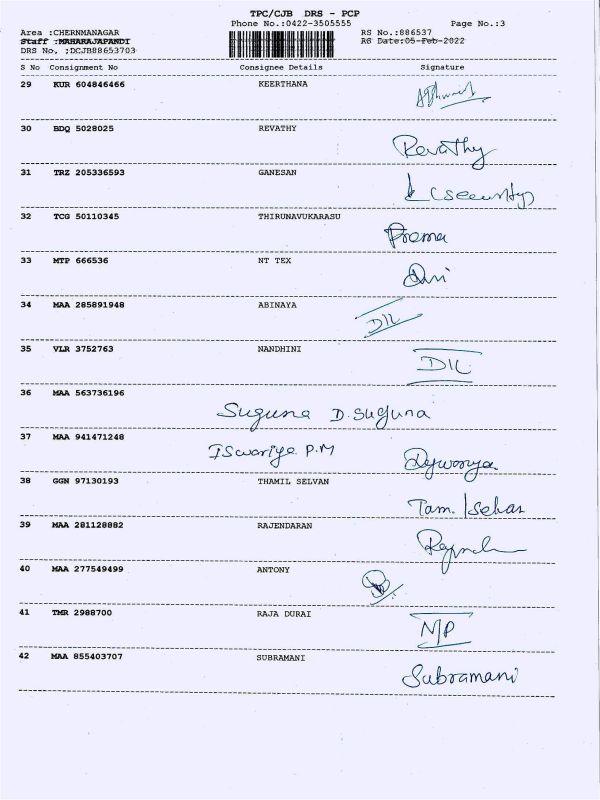 TPC/CJB DRS - PCP
Phone No.:0422-3505555 Page No.:3
Area :CHERNMANAGAR RS No.:886537
Staff :MAHARAJAPANDI RS Date:05-Feb-2022
DRS No. :DCJB88653703
S No Consignment No Consignee Details Signature
29 KUR 604846466 KEERTHANA
30 BDQ 5028025 REVATHY
Revathy
31 TRZ 205336593 GANESAN
(security)
32 TCG 50110345 THIRUNAVUKARASU
Prema
33 MTP 666536 NT TEX
34 MAA 285891948 ABINAYA
DIL
35 VLR 3752763 NANDHINI
DIL
36 MAA 563736196
Suguna D. Suguna
37 MAA 941471248
Iswariya P.M
38 GGN 97130193 THAMIL SELVAN
39 MAA 281128882 RAJENDARAN
40 MAA 277549499 ANTONY
41 TMR 2988700 RAJA DURAI
N/P
42 MAA 855403707 SUBRAMANI
Subramani